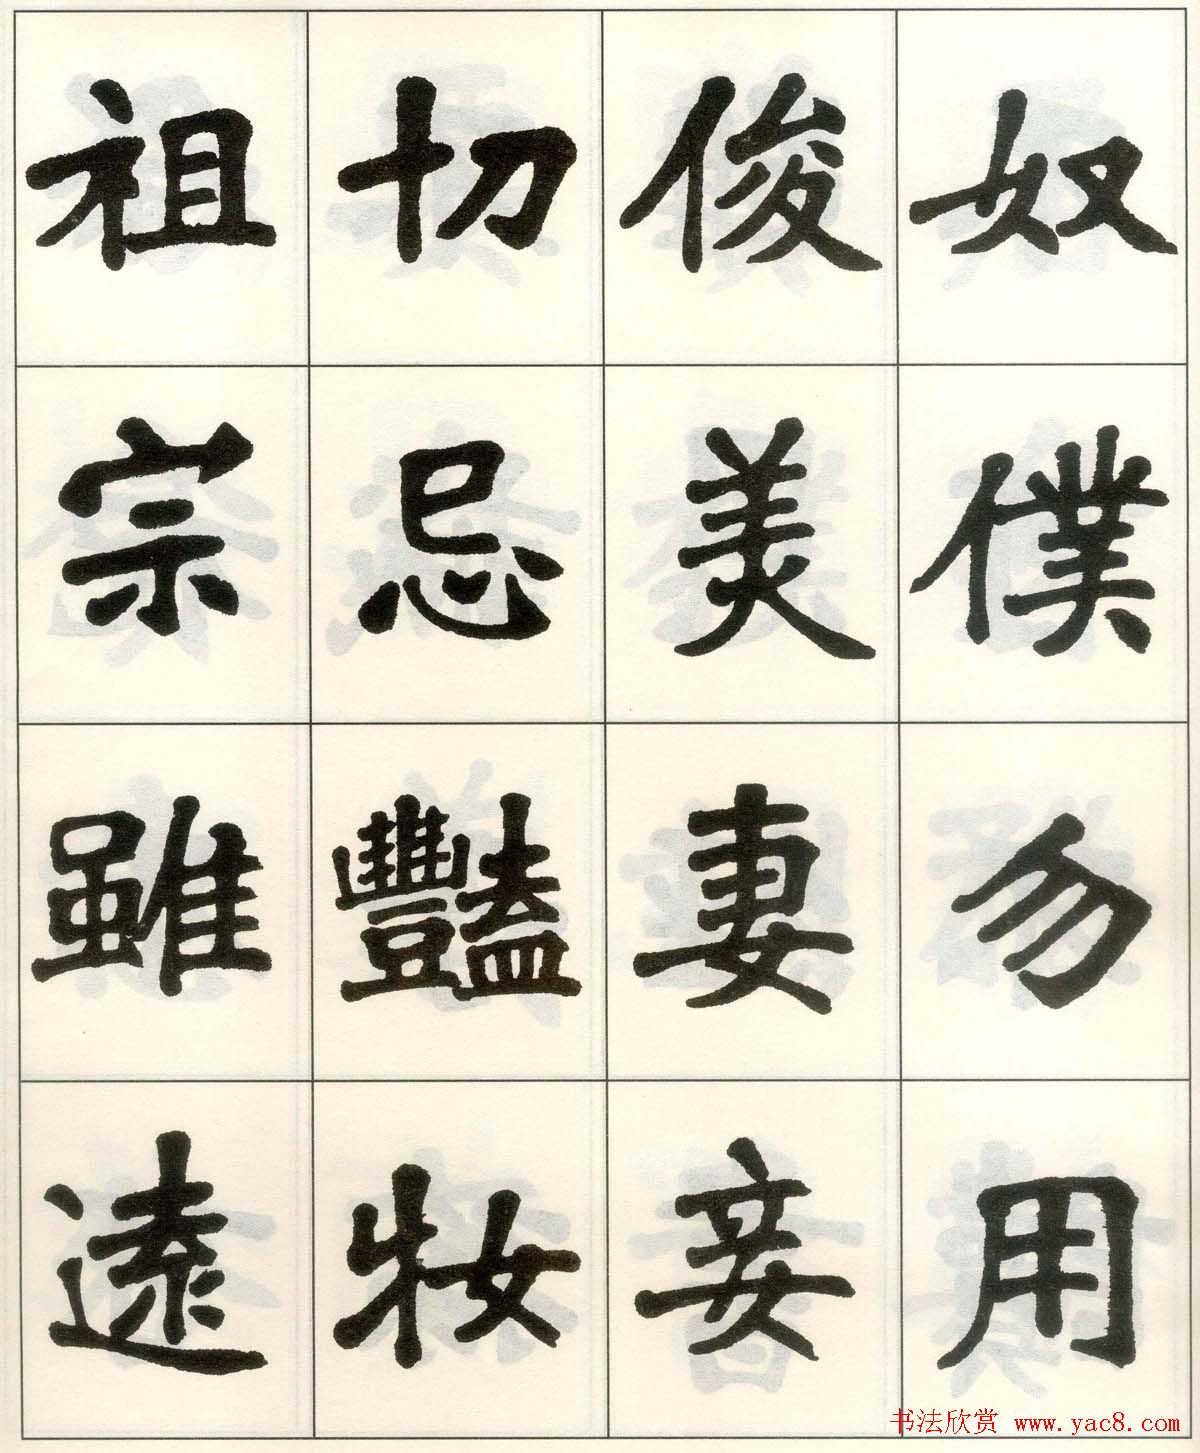 奴僕勿用
俊美妻妾
切忌豔妝
祖宗雖遠
书法欣赏 www.yac8.com